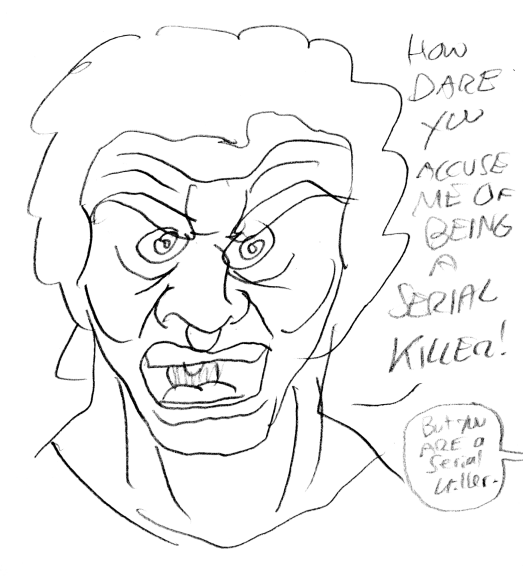 HOW
DARE
YOU
ACCUSE
ME OF
BEING
A
SERIAL
KILLER!
But you
ARE a
Serial
killer.